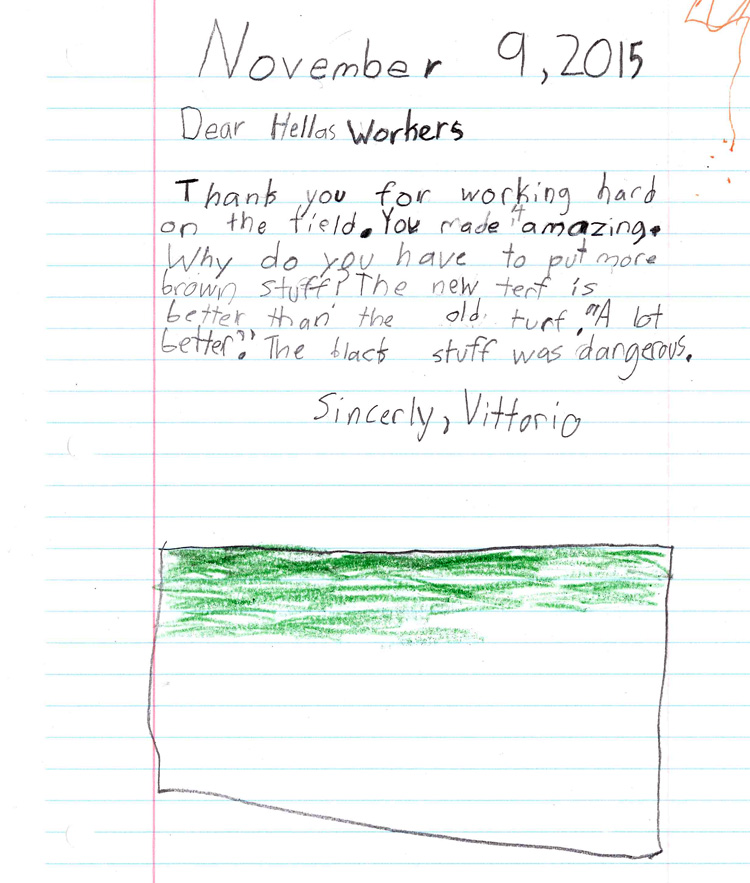 November 9, 2015
Dear Hellas Workers
Thank you for working hard
on the field. You made it amazing.
Why do you have to put more
brown stuff? The new terf is
better than the old turf. "A lot
better". The black stuff was dangerous.
Sincerly, Vittorio